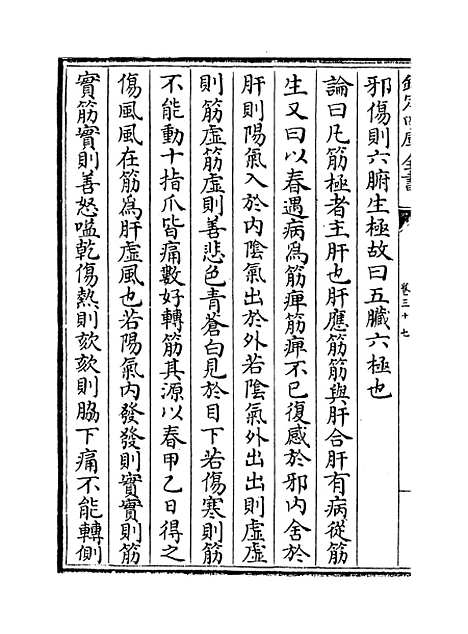 欽定四庫全書
卷三十七
邪傷則六腑生極故曰五臟六極也
論曰凡筋極者主肝也肝應筋筋與肝合肝有病從筋
生又曰以春遇病為筋痺筋痺不已復感於邪內舍於
肝則陽氣入於內陰氣出於外若陰氣外出出則虛虛
則筋虛筋虛則善悲色青蒼白見於目下若傷寒則筋
不能動十指爪皆痛數好轉筋其源以春甲乙日得之
傷風風在筋為肝虛風也若陽氣內發發則實實則筋
實筋實則善怒嗌乾傷熱則欬欬則脇下痛不能轉側